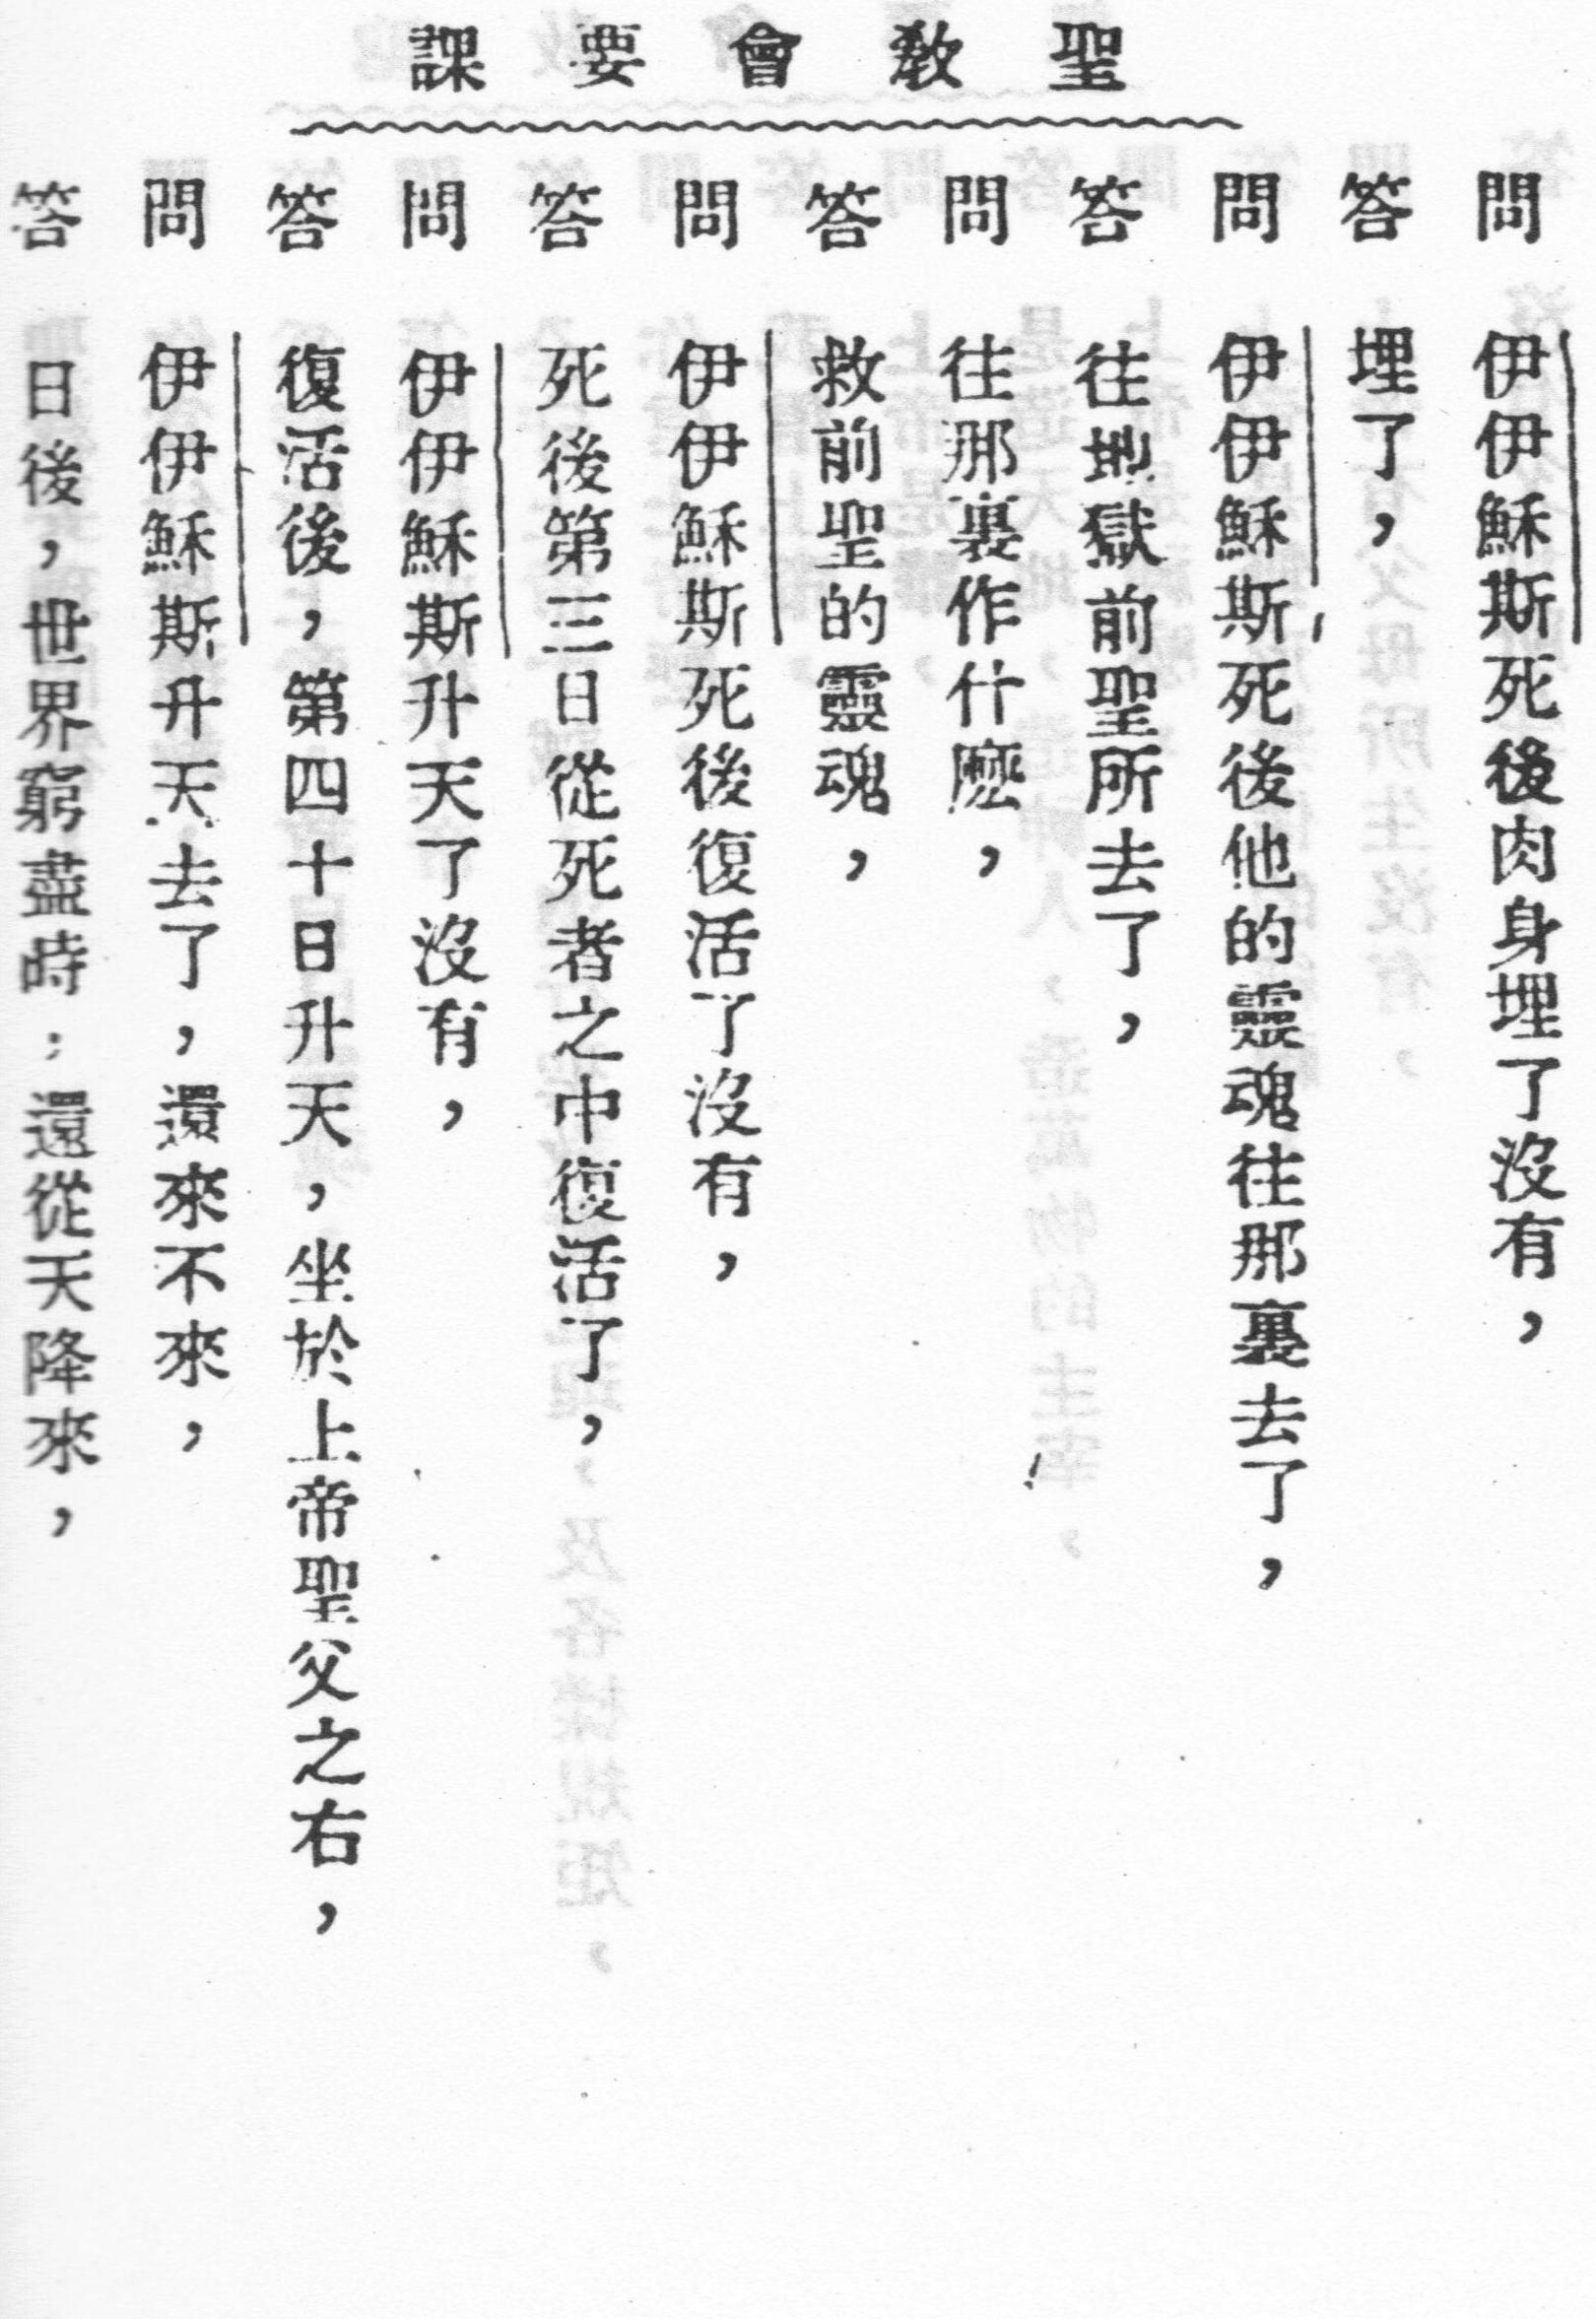 聖教會要課
問 伊伊穌斯死後肉身埋了沒有，
答 埋了，
問 伊伊穌斯死後他的靈魂往那裏去了，
答 往地獄前聖所去了，
問 往那裏作什麼，
答 救前聖的靈魂，
問 伊伊穌斯死後復活了沒有，
答 死後第三日從死者之中復活了，
問 伊伊穌斯升天了沒有，
答 復活後，第四十日升天，坐於上帝聖父之右，
問 伊伊穌斯升天去了，還來不來，
答 日後，世界窮盡時，還從天降來，